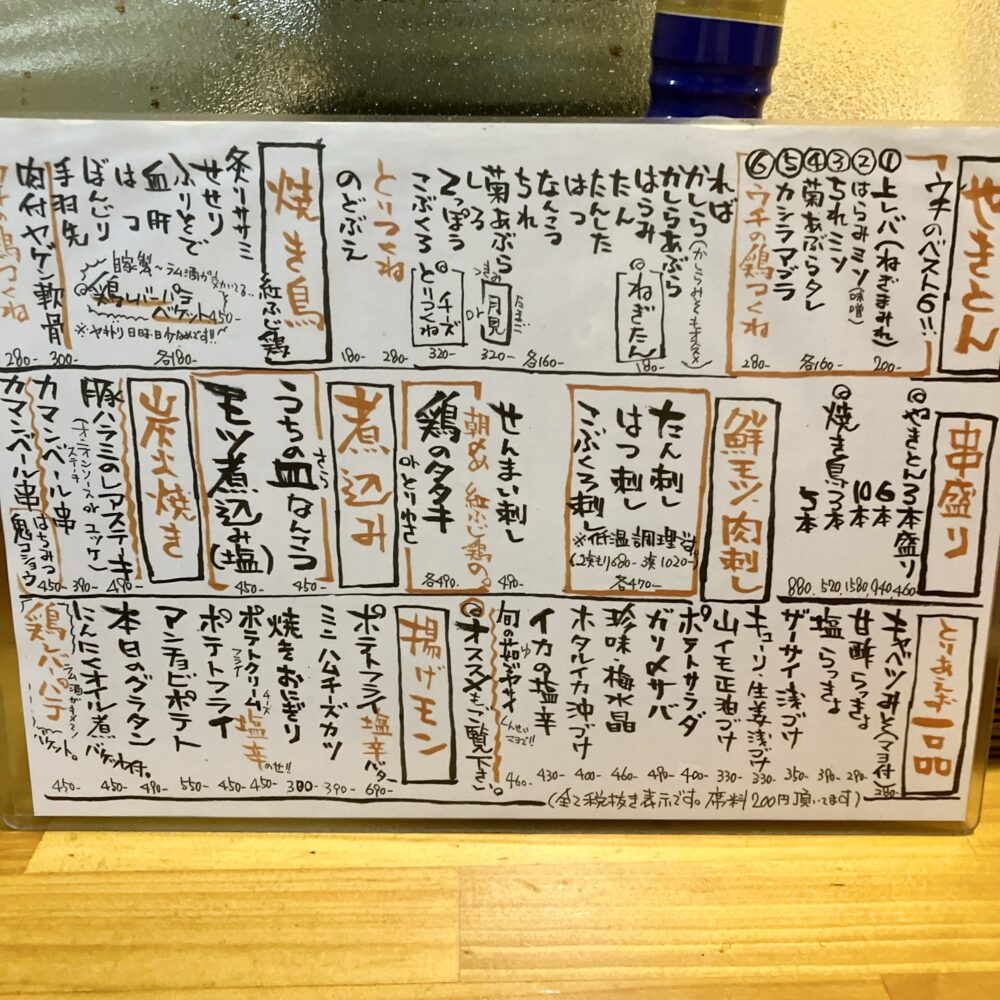 やきとん
「ウチのベスト6!!」
①上レバ(ねぎまみれ) 200-
②はらみミソ(味噌)
③ちれミソ
④菊あぶらタレ 各160-
⑤カシラマヨラ
⑥ウチの鶏つくね 280-
ればー
かしら(かしらみそもオススメ)
かしらあぶら
はらみ
たん
◎ねぎたん 180-
たんした
はつ
なんこつ
ちれ 各160-
菊あぶら
◎つきみ月見 320-
しろ
てっぽう
orチーズとりつくね 320-
こぶくろ
とりつくね 280-
のどぶえ 180-
焼き鳥
紅ふじ鶏
炙りササミ
せせり
ふりそで
血肝
はつ 各180-
ぼんじり
手羽先 300-
肉付ヤゲン軟骨 280-
自家製〜ラム酒が
◎鶏レバーパテ
バゲット450-
串盛り
◎やきとん3本盛り 460-
6本 940,
10本 1580,
◎焼き鳥3本 520,
5本 880,
鮮モツ、肉刺し
たん刺し
はつ刺し
こぶくろ刺し
※低温調理済
(2点もり680- 3点1020-)
各470-
せんまい刺し 490-
朝〆 紅ふじ鶏の。
鶏のタタキ
orとりわさ
各490-
煮込み
うちの皿なんこつ 450-
さら
モツ煮込み(塩) 450-
炭火焼き
豚ハラミのレアステーキ 490-
カマンベール串 390-
カマンベール串 はちみつ鬼コショウ 450-
とりあえず一品
キャベツみそ(マヨ付) 280-
甘酢らっきょ 290-
塩らっきょ 390-
ザーサイ浅づけ 350-
キューリ、生姜浅づけ 330-
山イモ正油づけ 330-
ポテトサラダ 400-
ガリ〆サバ 490-
珍味梅水晶 460-
ホタルイカ沖づけ 400-
イカの塩辛 430-
460-
◎オススメもご覧下さい。
揚げモン
ポテトフライ塩辛バター 690-
ミニハムチーズカツ 390-
焼きおにぎり 300-
ポテトクリームチーズフライ塩辛のせ!! 450-
ポテトフライ 450-
アンチョビポテト 550-
本日のグラタン 490-
にんにくオイル煮 バゲット付。 450-
鶏レバーパテ 450-
(全て税抜き表示です。席料200円頂いてます)